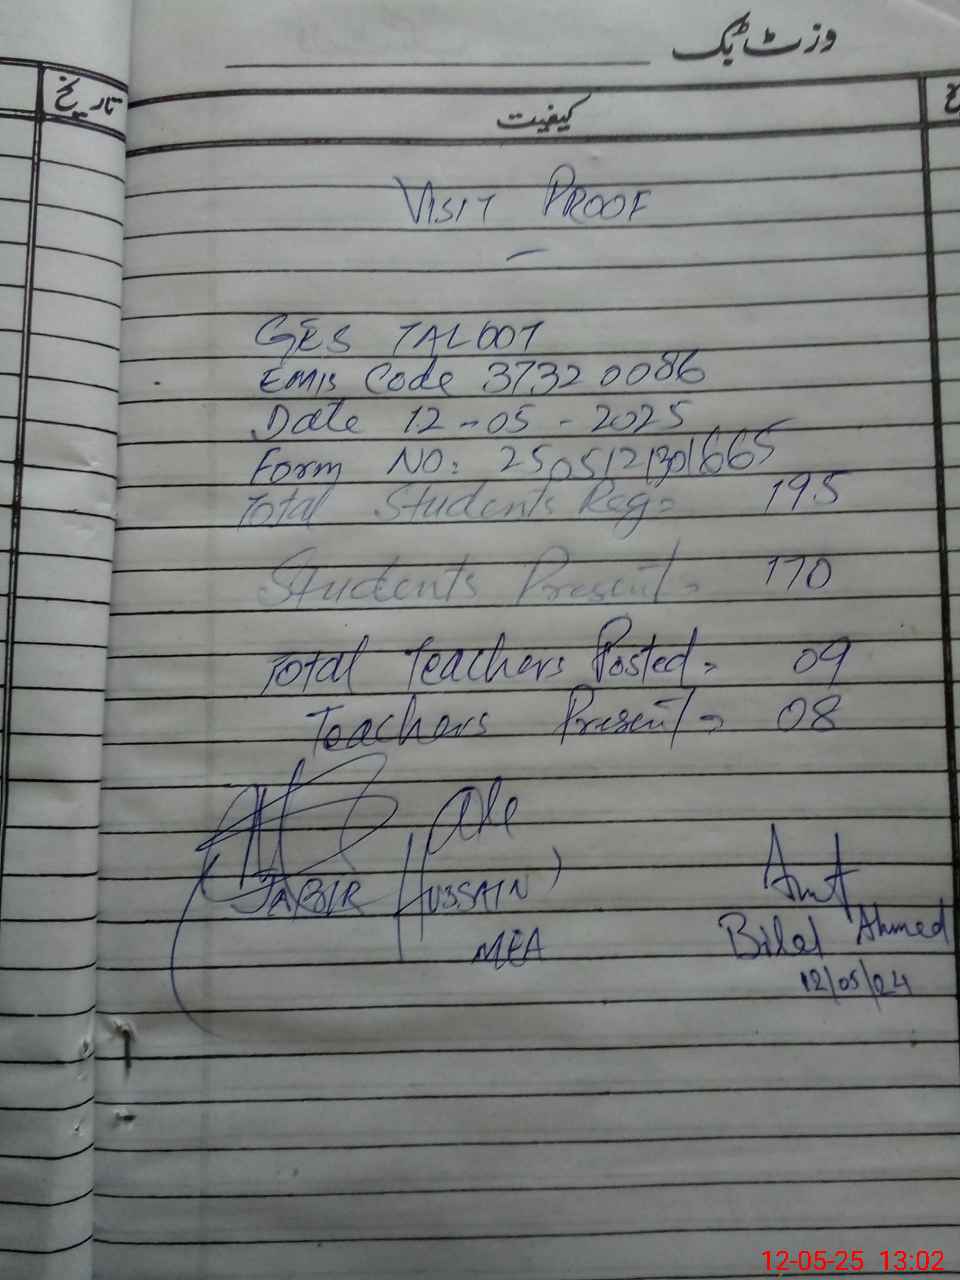 وزٹ بک
تاریخ
کیفیت
VISIT PROOF
GES TALOOT
EMIS Code 37320086
Date 12-05-2025
Form NO: 2505121301665
Total Students Reg= 195
Students Present= 170
Total Teachers Posted= 09
Teachers Present= 08
JABIR HUSSAIN
MEA
Bilal Ahmed
12/05/24
12-05-25 13:02